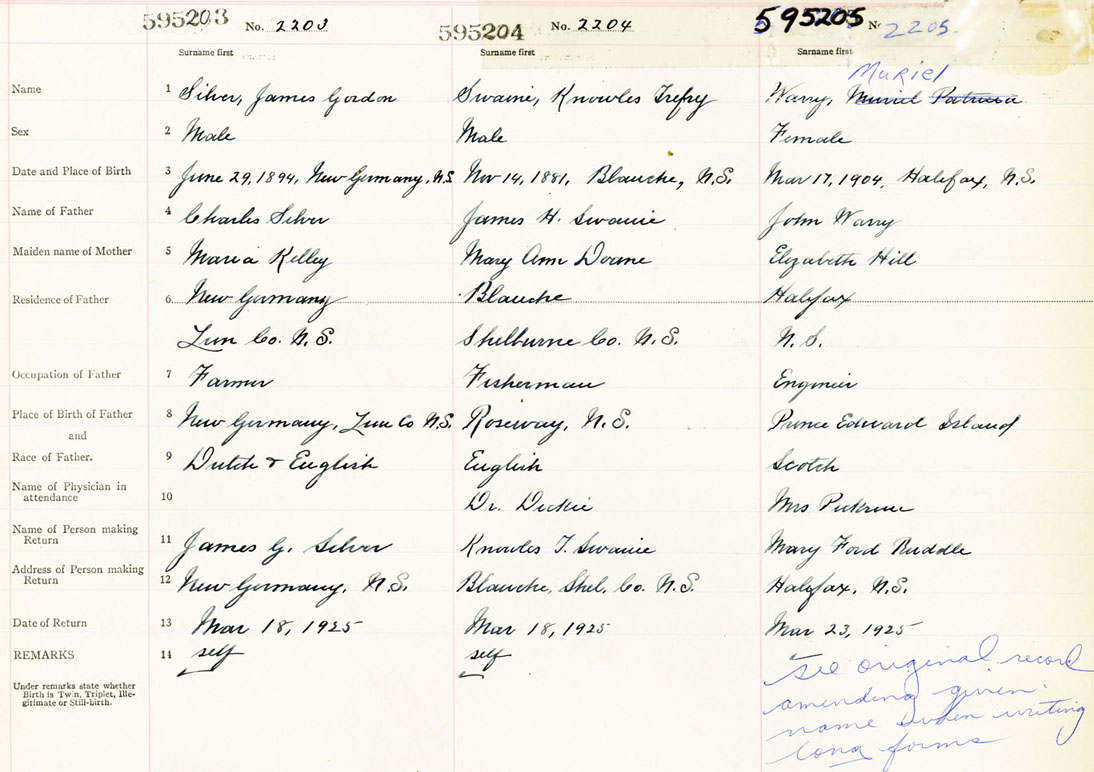 595203 No. 2203 595204 No. 2204 595205 No 2205
Surname first Surname first Surname first
Muriel
Name 1 Silver, James Gordon Swaine, Knowles Trefry Warry, Muriel Patricia
Sex 2 Male Male Female
Date and Place of Birth 3 June 29, 1894, New Germany, N.S. Nov 14, 1881, Blanche, N.S. Mar 17, 1904, Halifax, N.S.
Name of Father 4 Charles Silver James H. Swaine John Warry
Maiden name of Mother 5 Maria Kelley Mary Ann Doane Elizabeth Hill
Residence of Father 6 New Germany Blanche Halifax
Lun Co. N.S. Shelburne Co. N.S. N.S.
Occupation of Father 7 Farmer Fisherman Engineer
Place of Birth of Father 8 New Germany, Lun Co N.S. Roseway, N.S. Prince Edward Island
and
Race of Father. 9 Dutch & English English Scotch
Name of Physician in
attendance 10 Dr. Dickie Mrs
Name of Person making
Return 11 James G. Silver Knowles T. Swaine Mary Ford Ruddle
Address of Person making
Return 12 New Germany, N.S. Blanche, Shel. Co. N.S. Halifax, N.S.
Date of Return 13 Mar 18, 1925 Mar 18, 1925 Mar 23, 1925
REMARKS 14 self self see original record
Under remarks state whether
Birth is Twin, Triplet, Ille-
gitimate or Still-birth.
amending given
name when writing
long forms